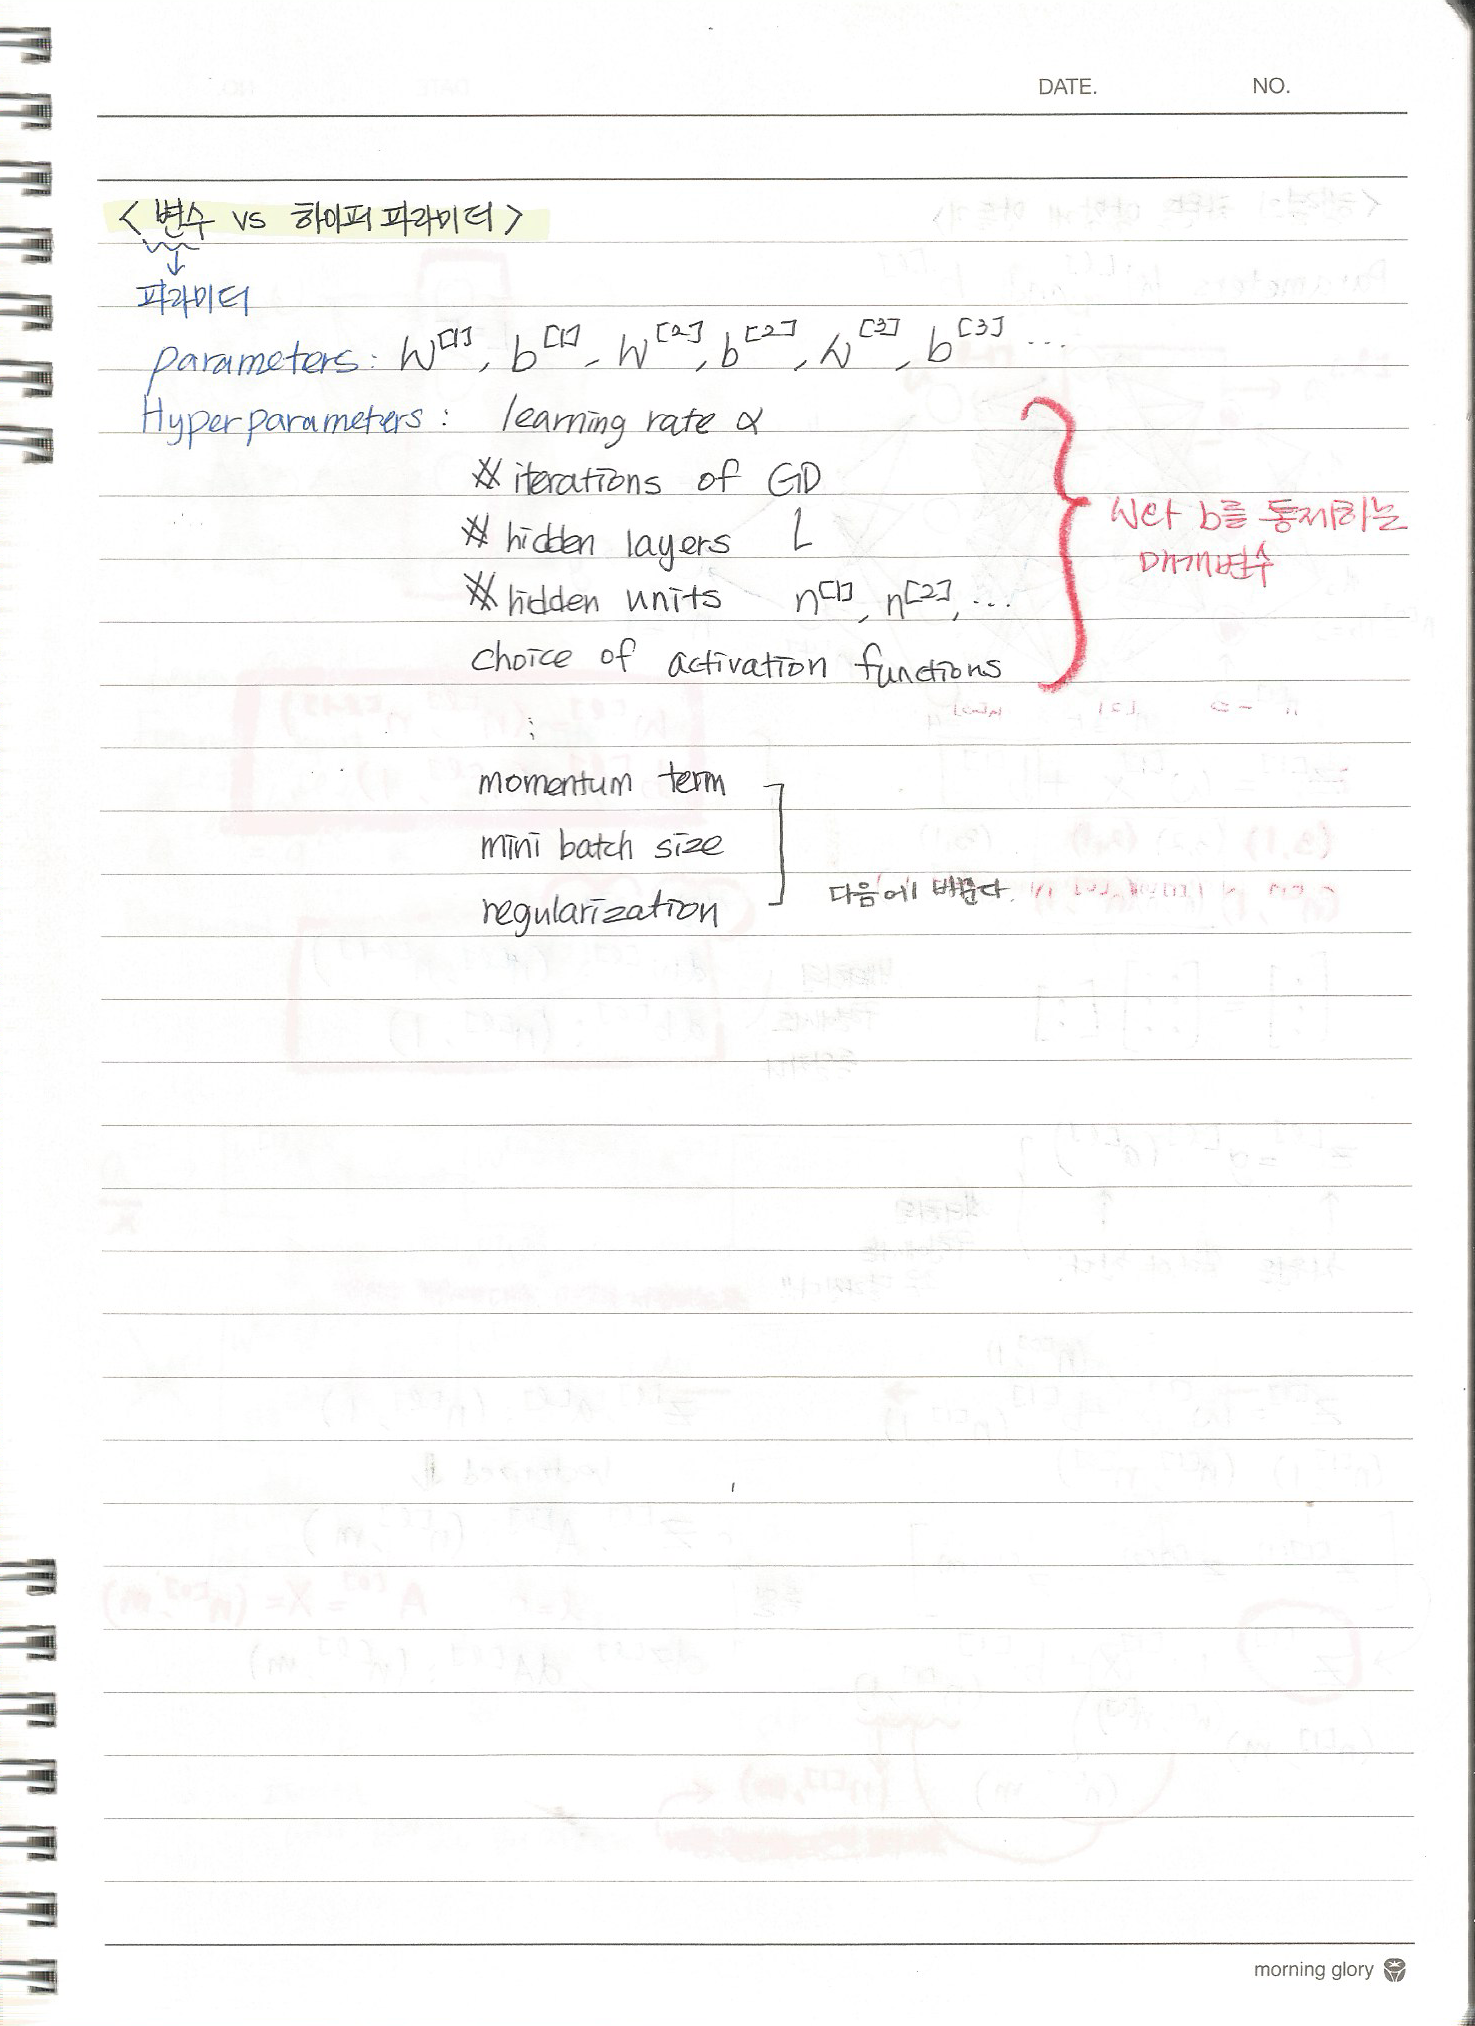 DATE. NO.
<변수 vs 하이퍼 파라미터>
↓
파라미터
parameters: W^[1], b^[1], W^[2], b^[2], W^[3], b^[3] ...
Hyperparameters: learning rate α
# iterations of GD
# hidden layers L
# hidden units n^[1], n^[2], ...
choice of activation functions
W와 b를 통제하는
매개변수
⋮
momentum term
mini batch size
regularization
다음에 배운다.
morning glory